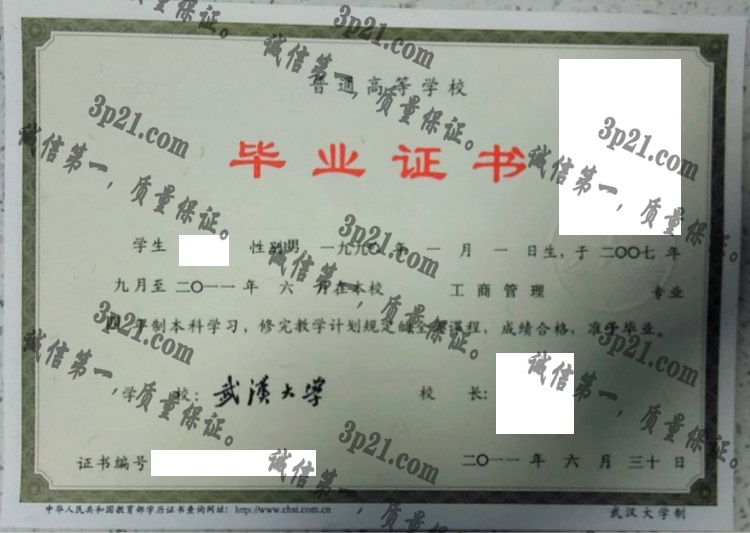 普通高等学校
毕业证书
学生 性别男 一九九〇年 一月 一日生，于二〇〇七年
九月至二〇一一年 六 月在本校 工商管理 专业
四年制本科学习，修完教学计划规定的全部课程，成绩合格，准予毕业。
学 校：武汉大学 校 长：
证书编号 二〇一一年 六月三十日
中华人民共和国教育部学历证书查询网址：http://www.chsi.com.cn 武汉大学制
3p21.com
诚信第一，质量保证。
3p21.com
诚信第一，质量保证。
3p21.com
诚信第一，质量保证。
3p21.com
诚信第一，质量保证。
3p21.com
诚信第一，质量保证。
3p21.com
诚信第一，质量保证。
3p21.com
诚信第一，质量保证。
3p21.com
诚信第一，质量保证。